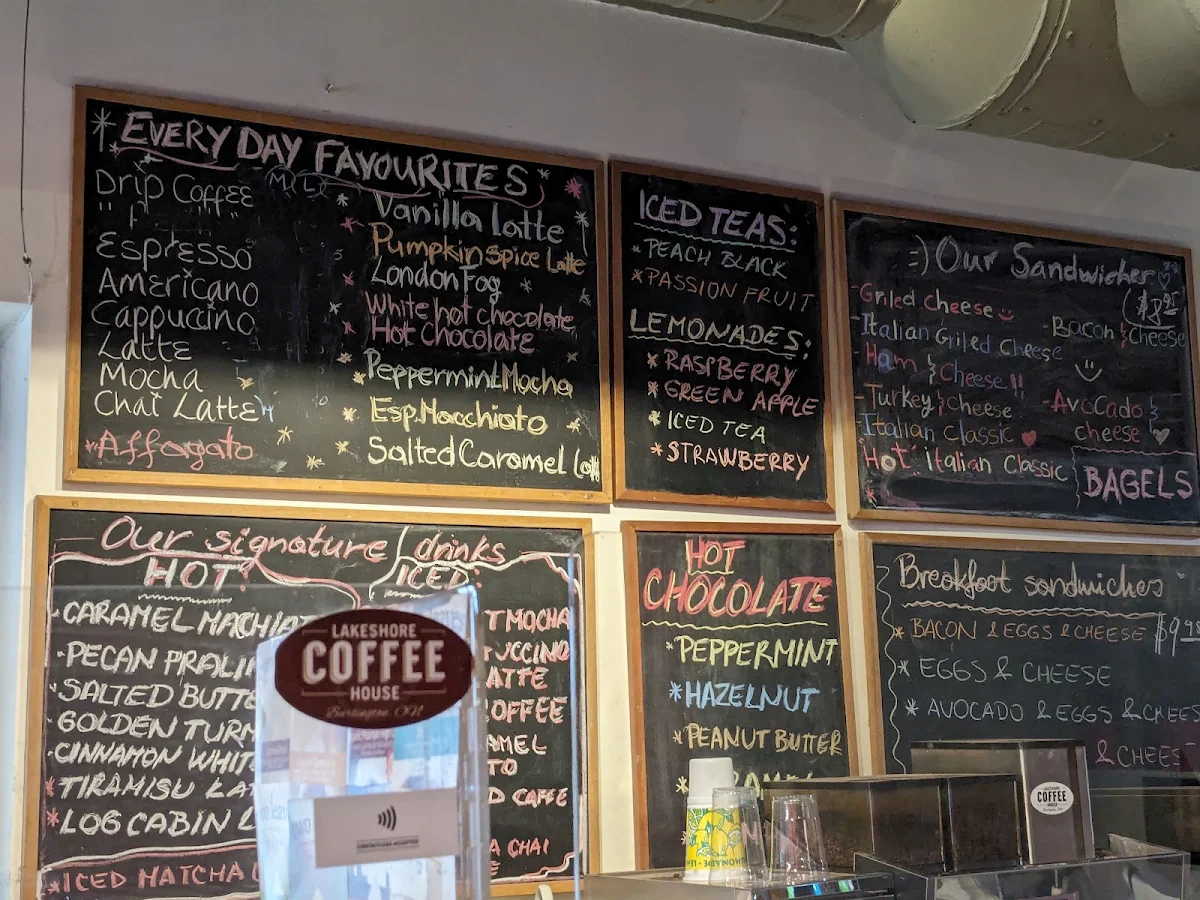 EVERY DAY FAVOURITES
Drip Coffee (M, L)
Espresso
Americano
Cappuccino
Latte
Mocha
Chai Latte
*Affogato
Vanilla latte
Pumpkin Spice Latte
London Fog
White hot chocolate
Hot Chocolate
Peppermint Mocha
Esp. Macchiato
Salted Caramel
ICED TEAS:
*PEACH BLACK
*PASSION FRUIT
LEMONADES:
*RASPBERRY
*GREEN APPLE
*ICED TEA
*STRAWBERRY
:) Our Sandwiches
($8.95
-Grilled cheese
-Italian Grilled Cheese
-Ham & Cheese !!
-Turkey & cheese
-Italian Classic
"Hot" italian Classic
-Bacon & Cheese
-Avocado &
cheese
BAGELS
Our signature drinks
HOT:
-CARAMEL
-PECAN
-SALTED
-GOLDEN
-CINNAMON
*TIRAMISU
*LOG CABIN
*ICED MATCHA
ICED:
MOCHA
CHAI
LAKESHORE
COFFEE
HOUSE
Burlington, ON
HOT
CHOCOLATE
*PEPPERMINT
*HAZELNUT
*PEANUT BUTTER
Breakfast sandwiches
*BACON & EGGS & CHEESE
*EGGS & CHEESE
*AVOCADO & EGGS &
LAKESHORE
COFFEE
HOUSE